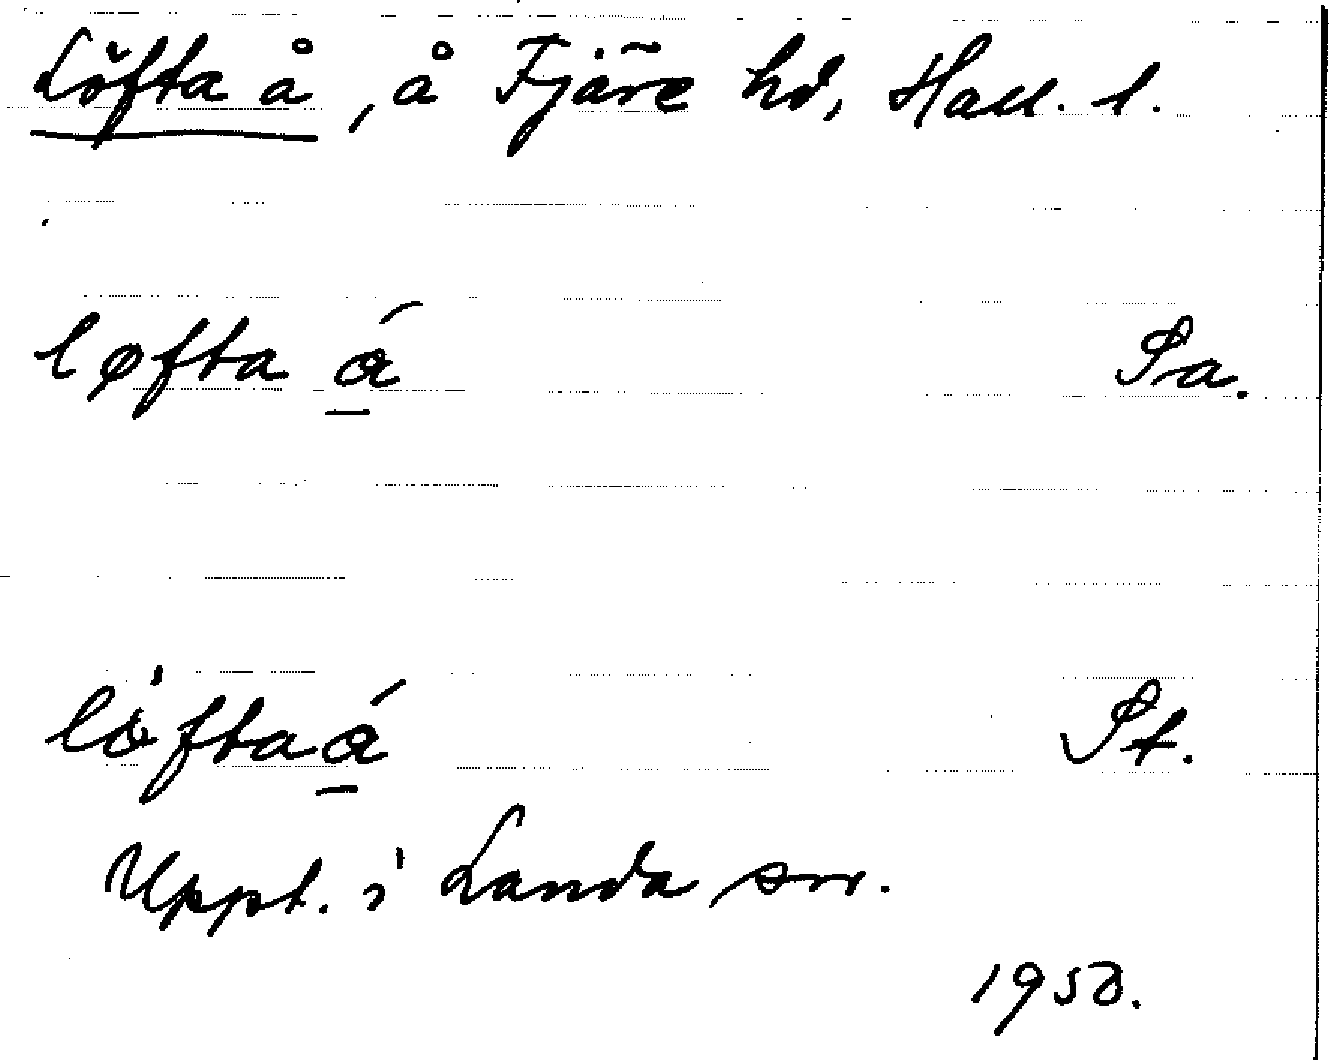 Löfta å, å Fjäre hd, Hall. l.
løfta á Sa.
lo̍ftaá St.
Uppt. i Landa sn.
1950.